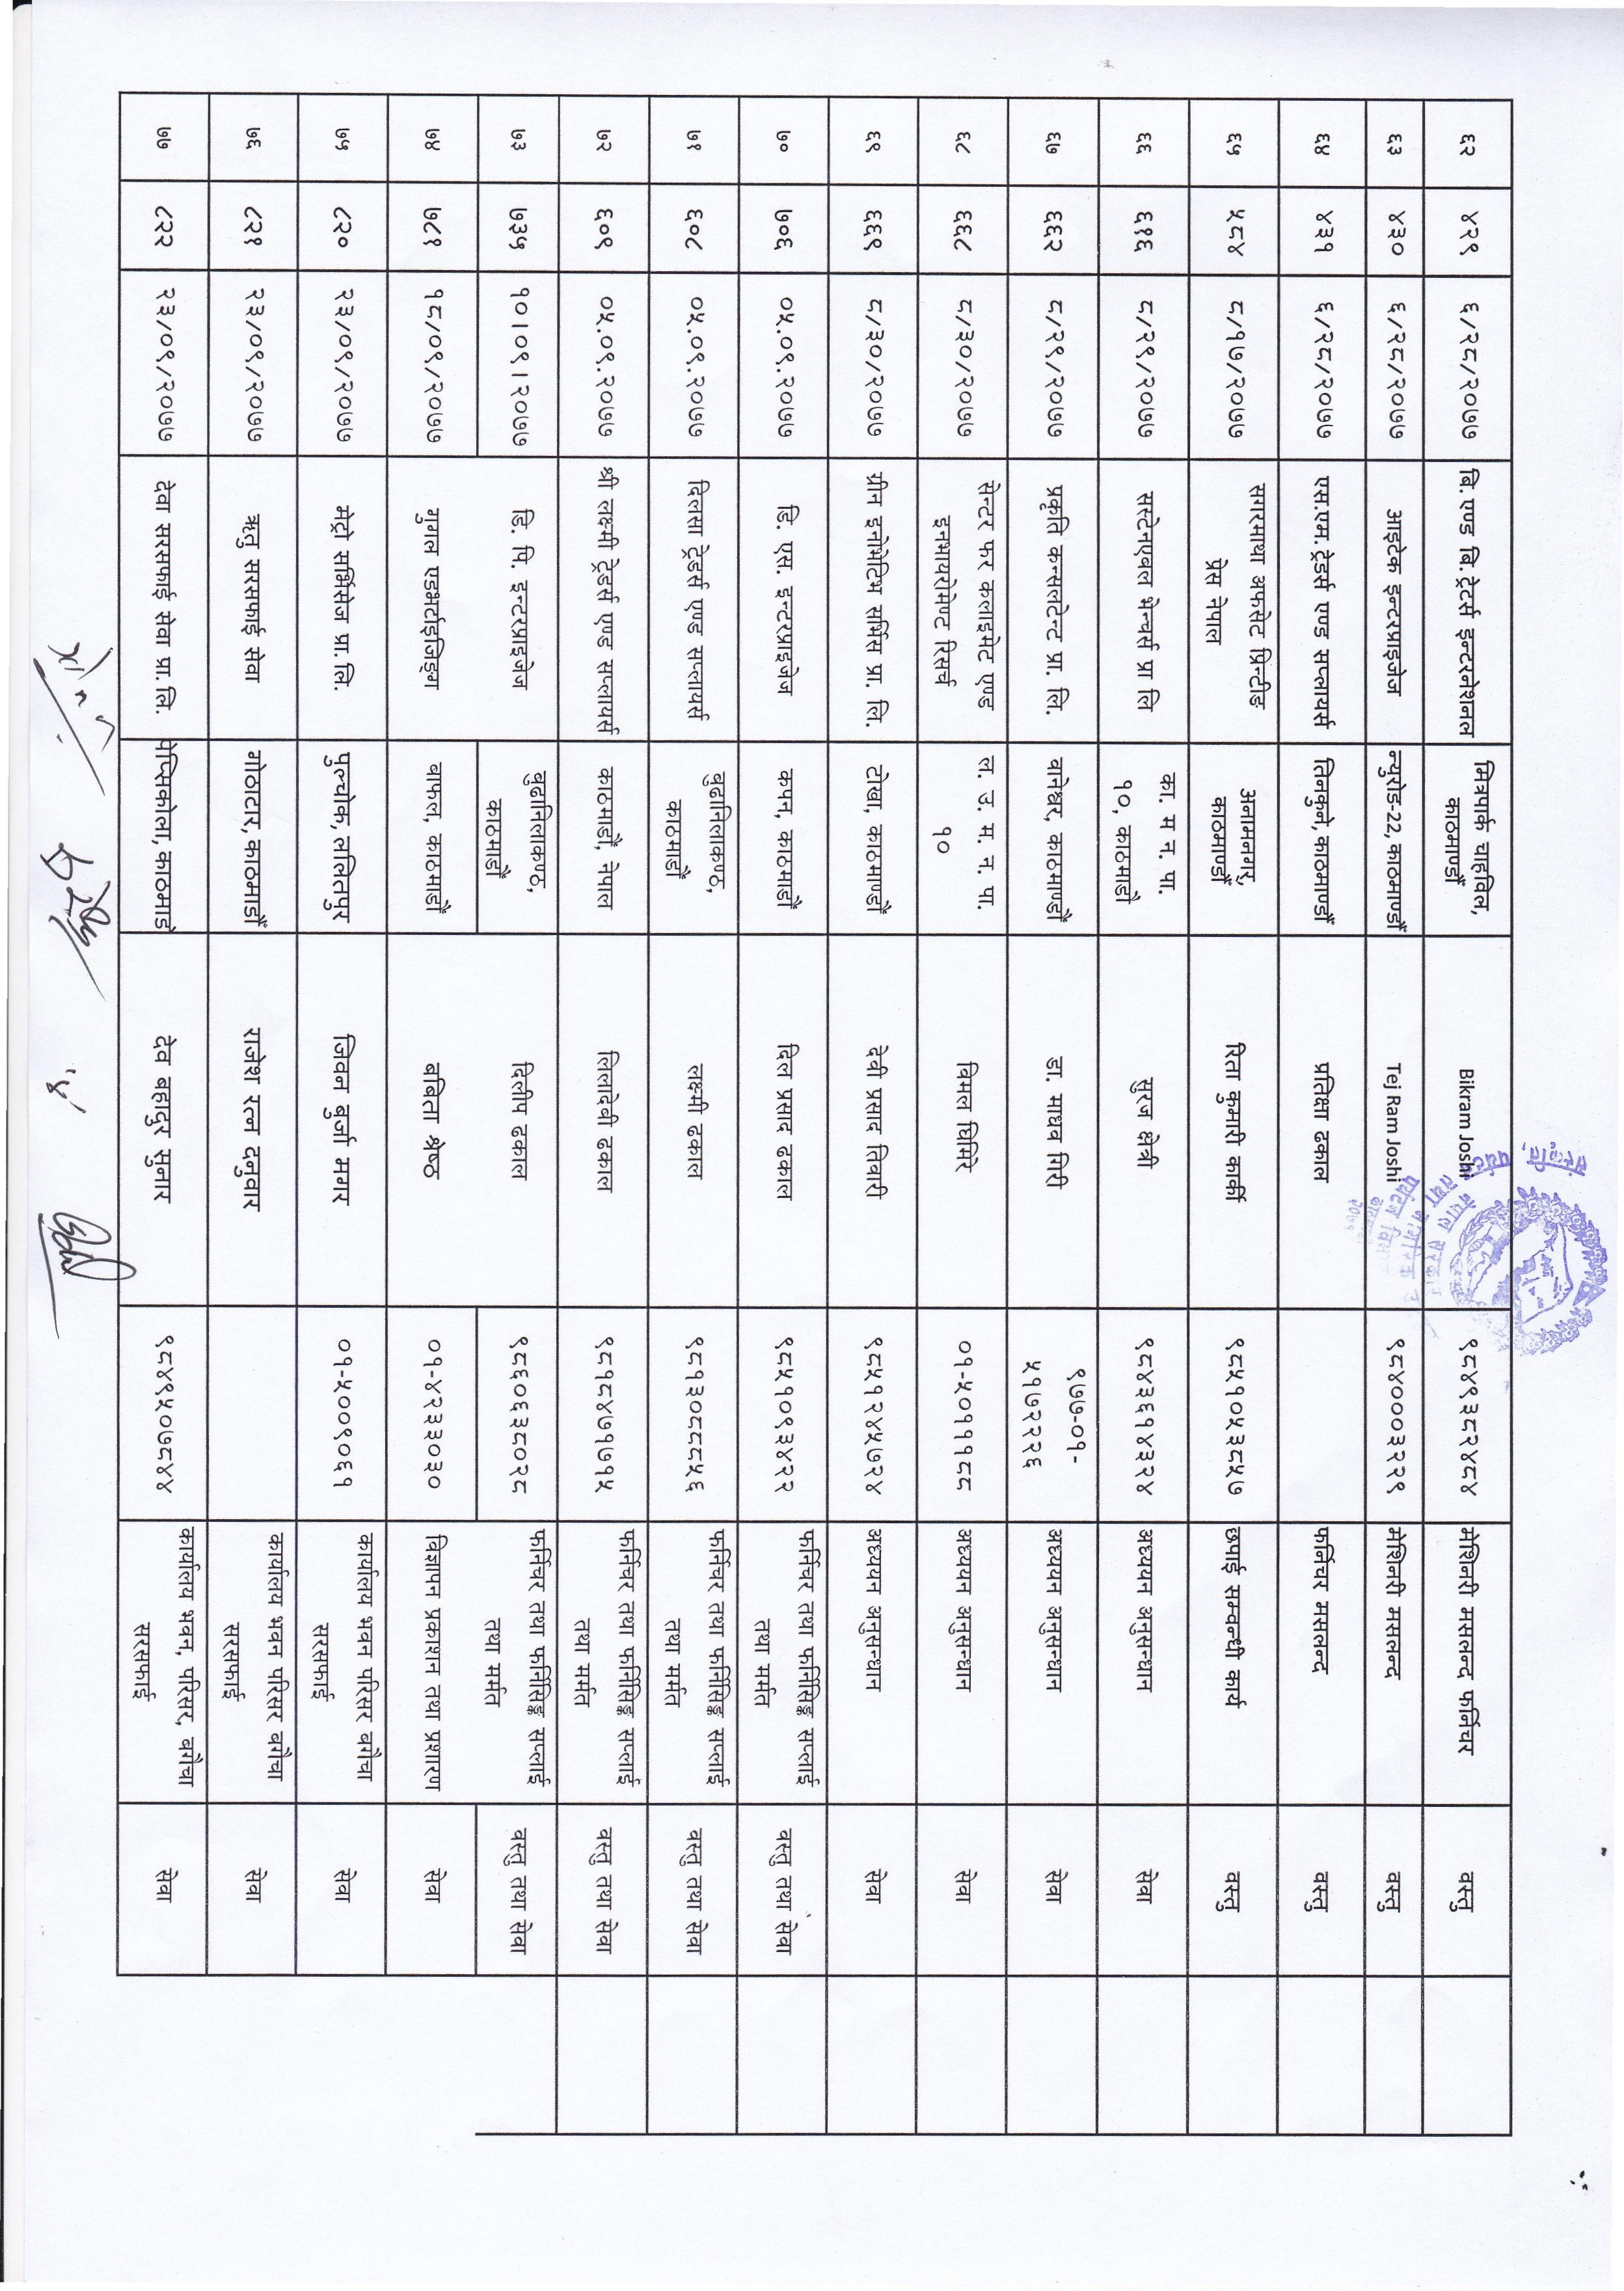 ६२ ४२९ ६/२८/२०७७ बि. एण्ड बि. ट्रेटर्स इन्टरनेशनल मित्रपार्क चाहविल, काठमाण्डौं Bikram Joshi ९८४९३८२४८४ मेशिनरी मसलन्द फर्निचर वस्तु
६३ ४३० ६/२८/२०७७ आइटेक इन्टरप्राइजेज न्युरोड-22, काठमाण्डौं Tej Ram Joshi ९८४०००३२२९ मेशिनरी मसलन्द वस्तु
६४ ४३१ ६/२८/२०७७ एस.एम. ट्रेडर्स एण्ड सप्लायर्स तिनकुने, काठमाण्डौं प्रतिक्षा ढकाल फर्निचर मसलन्द वस्तु
६५ ५८४ ८/१७/२०७७ सगरमाथा अफसेट प्रिन्टीङ प्रेस नेपाल अनामनगर, काठमाण्डौं रिता कुमारी कार्की ९८५१०५३८५७ छपाई सम्वन्धी कार्य वस्तु
६६ ६१६ ८/२९/२०७७ सस्टेनएवल भेन्चर्स प्रा लि का. म न. पा. १०, काठमाडौं सुरज क्षेत्री ९८४३६१४३२४ अध्ययन अनुसन्धान सेवा
६७ ६६२ ८/२९/२०७७ प्रकृति कन्सलटेन्ट प्रा. लि. बानेश्वर, काठमाण्डौं डा. माधव गिरी ९७७-०१-५१७२२२६ अध्ययन अनुसन्धान सेवा
६८ ६६८ ८/३०/२०७७ सेन्टर फर क्लाइमेट एण्ड इनभायरोमेण्ट रिसर्च ल. उ. म. न. पा. १० विमल घिमिरे ०१-५०११९८८ अध्ययन अनुसन्धान सेवा
६९ ६६९ ८/३०/२०७७ ग्रीन इनोभेटिभ सर्भिस प्रा. लि. टोखा, काठमाण्डौं देवी प्रसाद तिवारी ९८५१२४५७२४ अध्ययन अनुसन्धान सेवा
७० ७०६ ०५.०९.२०७७ डि. एस. इन्टरप्राइजेज कपन, काठमाडौं दिल प्रसाद ढकाल ९८५१०९३४२२ फर्निचर तथा फर्निसिङ्ग सप्लाई तथा मर्मत वस्तु तथा सेवा
७१ ६०८ ०५.०९.२०७७ दिलसा ट्रेडर्स एण्ड सप्लायर्स बुढानिलाकण्ठ, काठमाडौं लक्ष्मी ढकाल ९८१३०८८८५६ फर्निचर तथा फर्निसिङ्ग सप्लाई तथा मर्मत वस्तु तथा सेवा
७२ ६०९ ०५.०९.२०७७ श्री लक्ष्मी ट्रेडर्स एण्ड सप्लायर्स काठमाडौं, नेपाल लिलादेवी ढकाल ९८१८४७१७१५ फर्निचर तथा फर्निसिङ्ग सप्लाई तथा मर्मत वस्तु तथा सेवा
७३ ७३५ १०।०९।२०७७ डि. पि. इन्टरप्राइजेज बुढानिलाकण्ठ, काठमाडौं दिलीप ढकाल ९८६०६३८०२८ फर्निचर तथा फर्निसिङ्ग सप्लाई तथा मर्मत वस्तु तथा सेवा
७४ ७८१ १८/०९/२०७७ गुगल एडभर्टाइजिङ्ग बाफल, काठमाडौं बविता श्रेष्ठ ०१-४२३३०३० विज्ञापन प्रकाशन तथा प्रशारण सेवा
७५ ८२० २३/०९/२०७७ मेट्रो सर्भिसेज प्रा. लि. पुल्चोक, ललितपुर जिवन बुर्जा मगर ०१-५००९०६१ कार्यालय भवन परिसर बगैंचा सरसफाई सेवा
७६ ८२१ २३/०९/२०७७ ऋतु सरसफाई सेवा गोठाटार, काठमाडौं राजेश रत्न दनुवार कार्यालय भवन परिसर बगैंचा सरसफाई सेवा
७७ ८२२ २३/०९/२०७७ देवा सरसफाई सेवा प्रा. लि. पेप्सिकोला, काठमाडौं देव बहादुर सुनार ९८४९५०७८४४ कार्यालय भवन, परिसर, बगैंचा सरसफाई सेवा